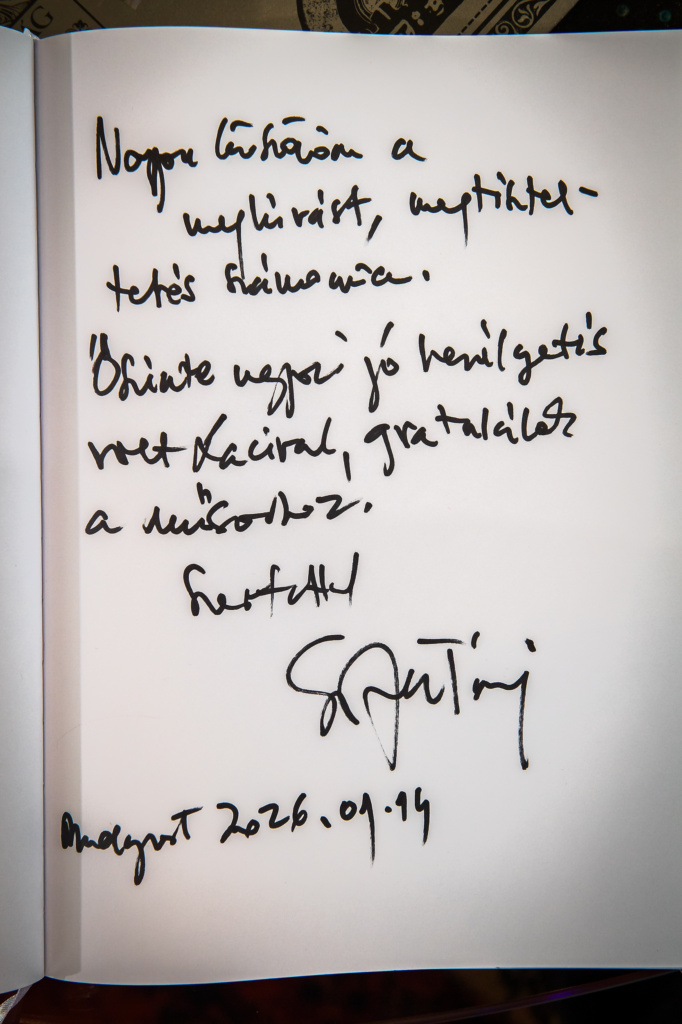 G
Nagyon köszönöm a
meghívást, megtisztel-
tetés számomra.
Őszinte nagyon jó beszélgetés
volt Lacival, gratulálok
a műsorhoz.
Szeretettel
Budapest 2026.01.14